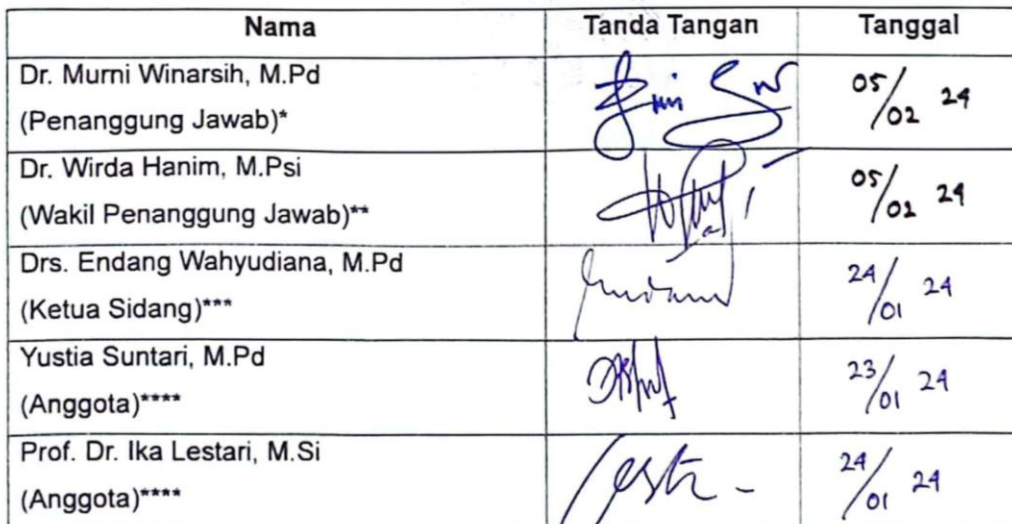 Nama Tanda Tangan Tanggal
Dr. Murni Winarsih, M.Pd
(Penanggung Jawab)*
05/02 24
Dr. Wirda Hanim, M.Psi
(Wakil Penanggung Jawab)**
05/02 24
Drs. Endang Wahyudiana, M.Pd
(Ketua Sidang)***
24/01 24
Yustia Suntari, M.Pd
(Anggota)****
23/01 24
Prof. Dr. Ika Lestari, M.Si
(Anggota)****
24/01 24